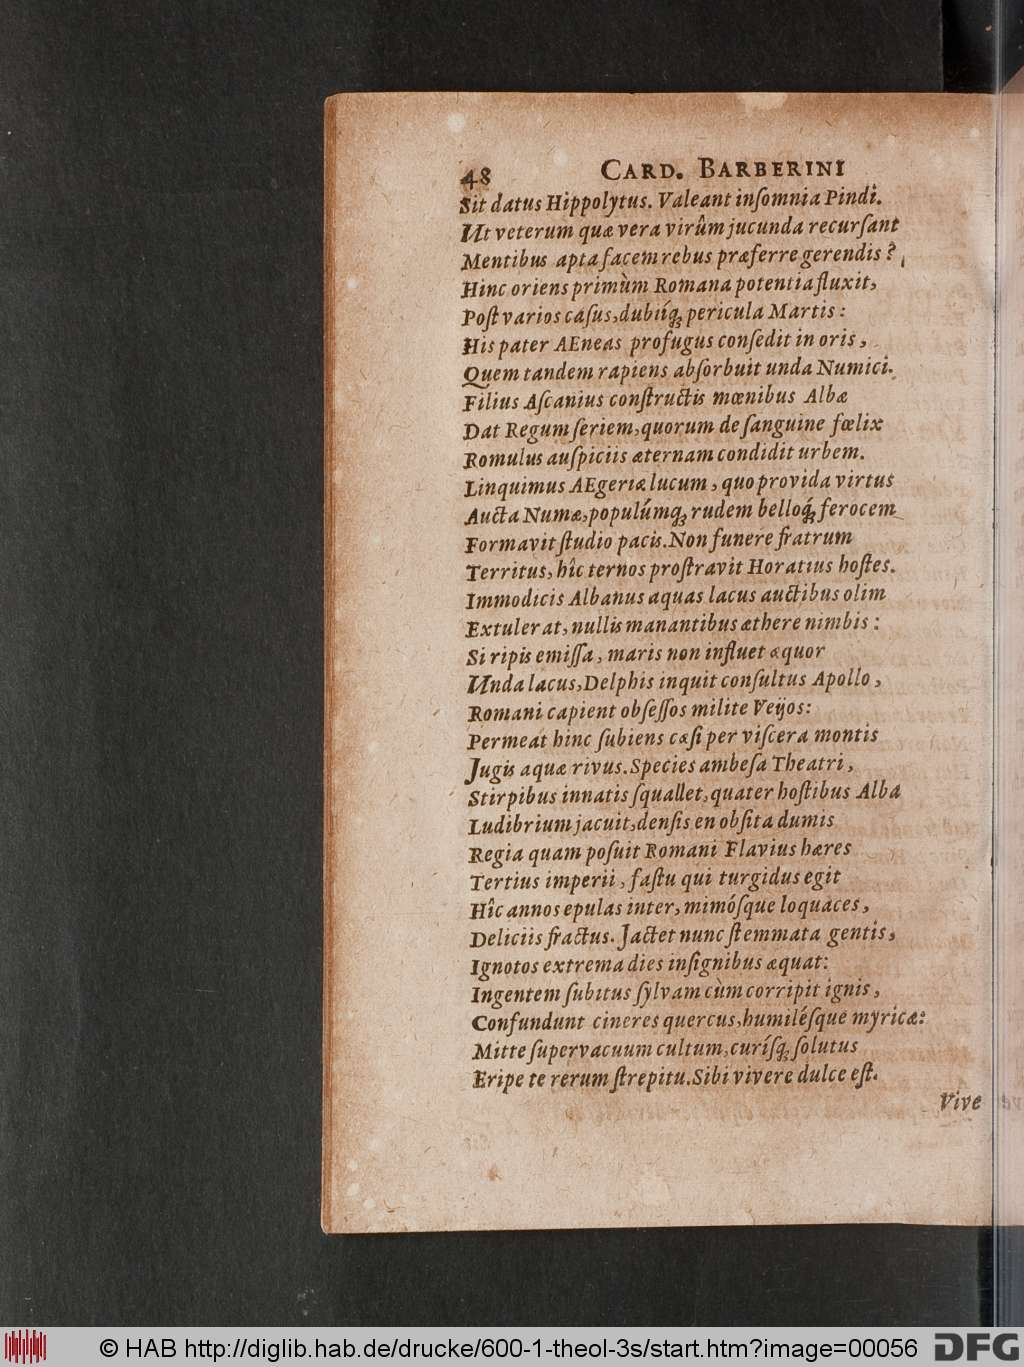 48 CARD. BARBERINI
Sit datus Hippolytus. Valeant inſomnia Pindi.
Ut veterum quæ vera virûm jucunda recurſant
Mentibus apta facem rebus præferre gerendis?
Hinc oriens primùm Romana potentia fluxit,
Poſt varios caſus, dubiíq; pericula Martis:
His pater AEneas profugus conſedit in oris,
Quem tandem rapiens abſorbuit unda Numici.
Filius Aſcanius conſtructis mœnibus Albæ
Dat Regum ſeriem, quorum de ſanguine fœlix
Romulus auſpiciis æternam condidit urbem.
Linquimus AEgeriæ lucum, quo provida virtus
Aucta Numæ, populúmq; rudem belloq́; ferocem
Formavit ſtudio pacis. Non funere fratrum
Territus, hîc ternos proſtravit Horatius hoſtes.
Immodicis Albanus aquas lacus auctibus olim
Extulerat, nullis manantibus æthere nimbis:
Si ripis emiſſa, maris non influet æquor
Unda lacus, Delphis inquit conſultus Apollo,
Romani capient obſeſſos milite Veijos:
Permeat hinc ſubiens cæſi per viſcera montis
Jugis aquæ rivus. Species ambeſa Theatri,
Stirpibus innatis ſquallet, quater hoſtibus Alba
Ludibrium jacuit, denſis en obſita dumis
Regia quam poſuit Romani Flavius hæres
Tertius imperii, faſtu qui turgidus egit
Hîc annos epulas inter, mimóſque loquaces,
Deliciis fractus. Jactet nunc ſtemmata gentis,
Ignotos extrema dies inſignibus æquat:
Ingentem ſubitus ſylvam cùm corripit ignis,
Confundunt cineres quercus, humiléſque myricæ:
Mitte ſupervacuum cultum, curíſq; ſolutus
Eripe te rerum ſtrepitu. Sibi vivere dulce eſt.
Vive
© HAB http://diglib.hab.de/drucke/600-1-theol-3s/start.htm?image=00056
DFG